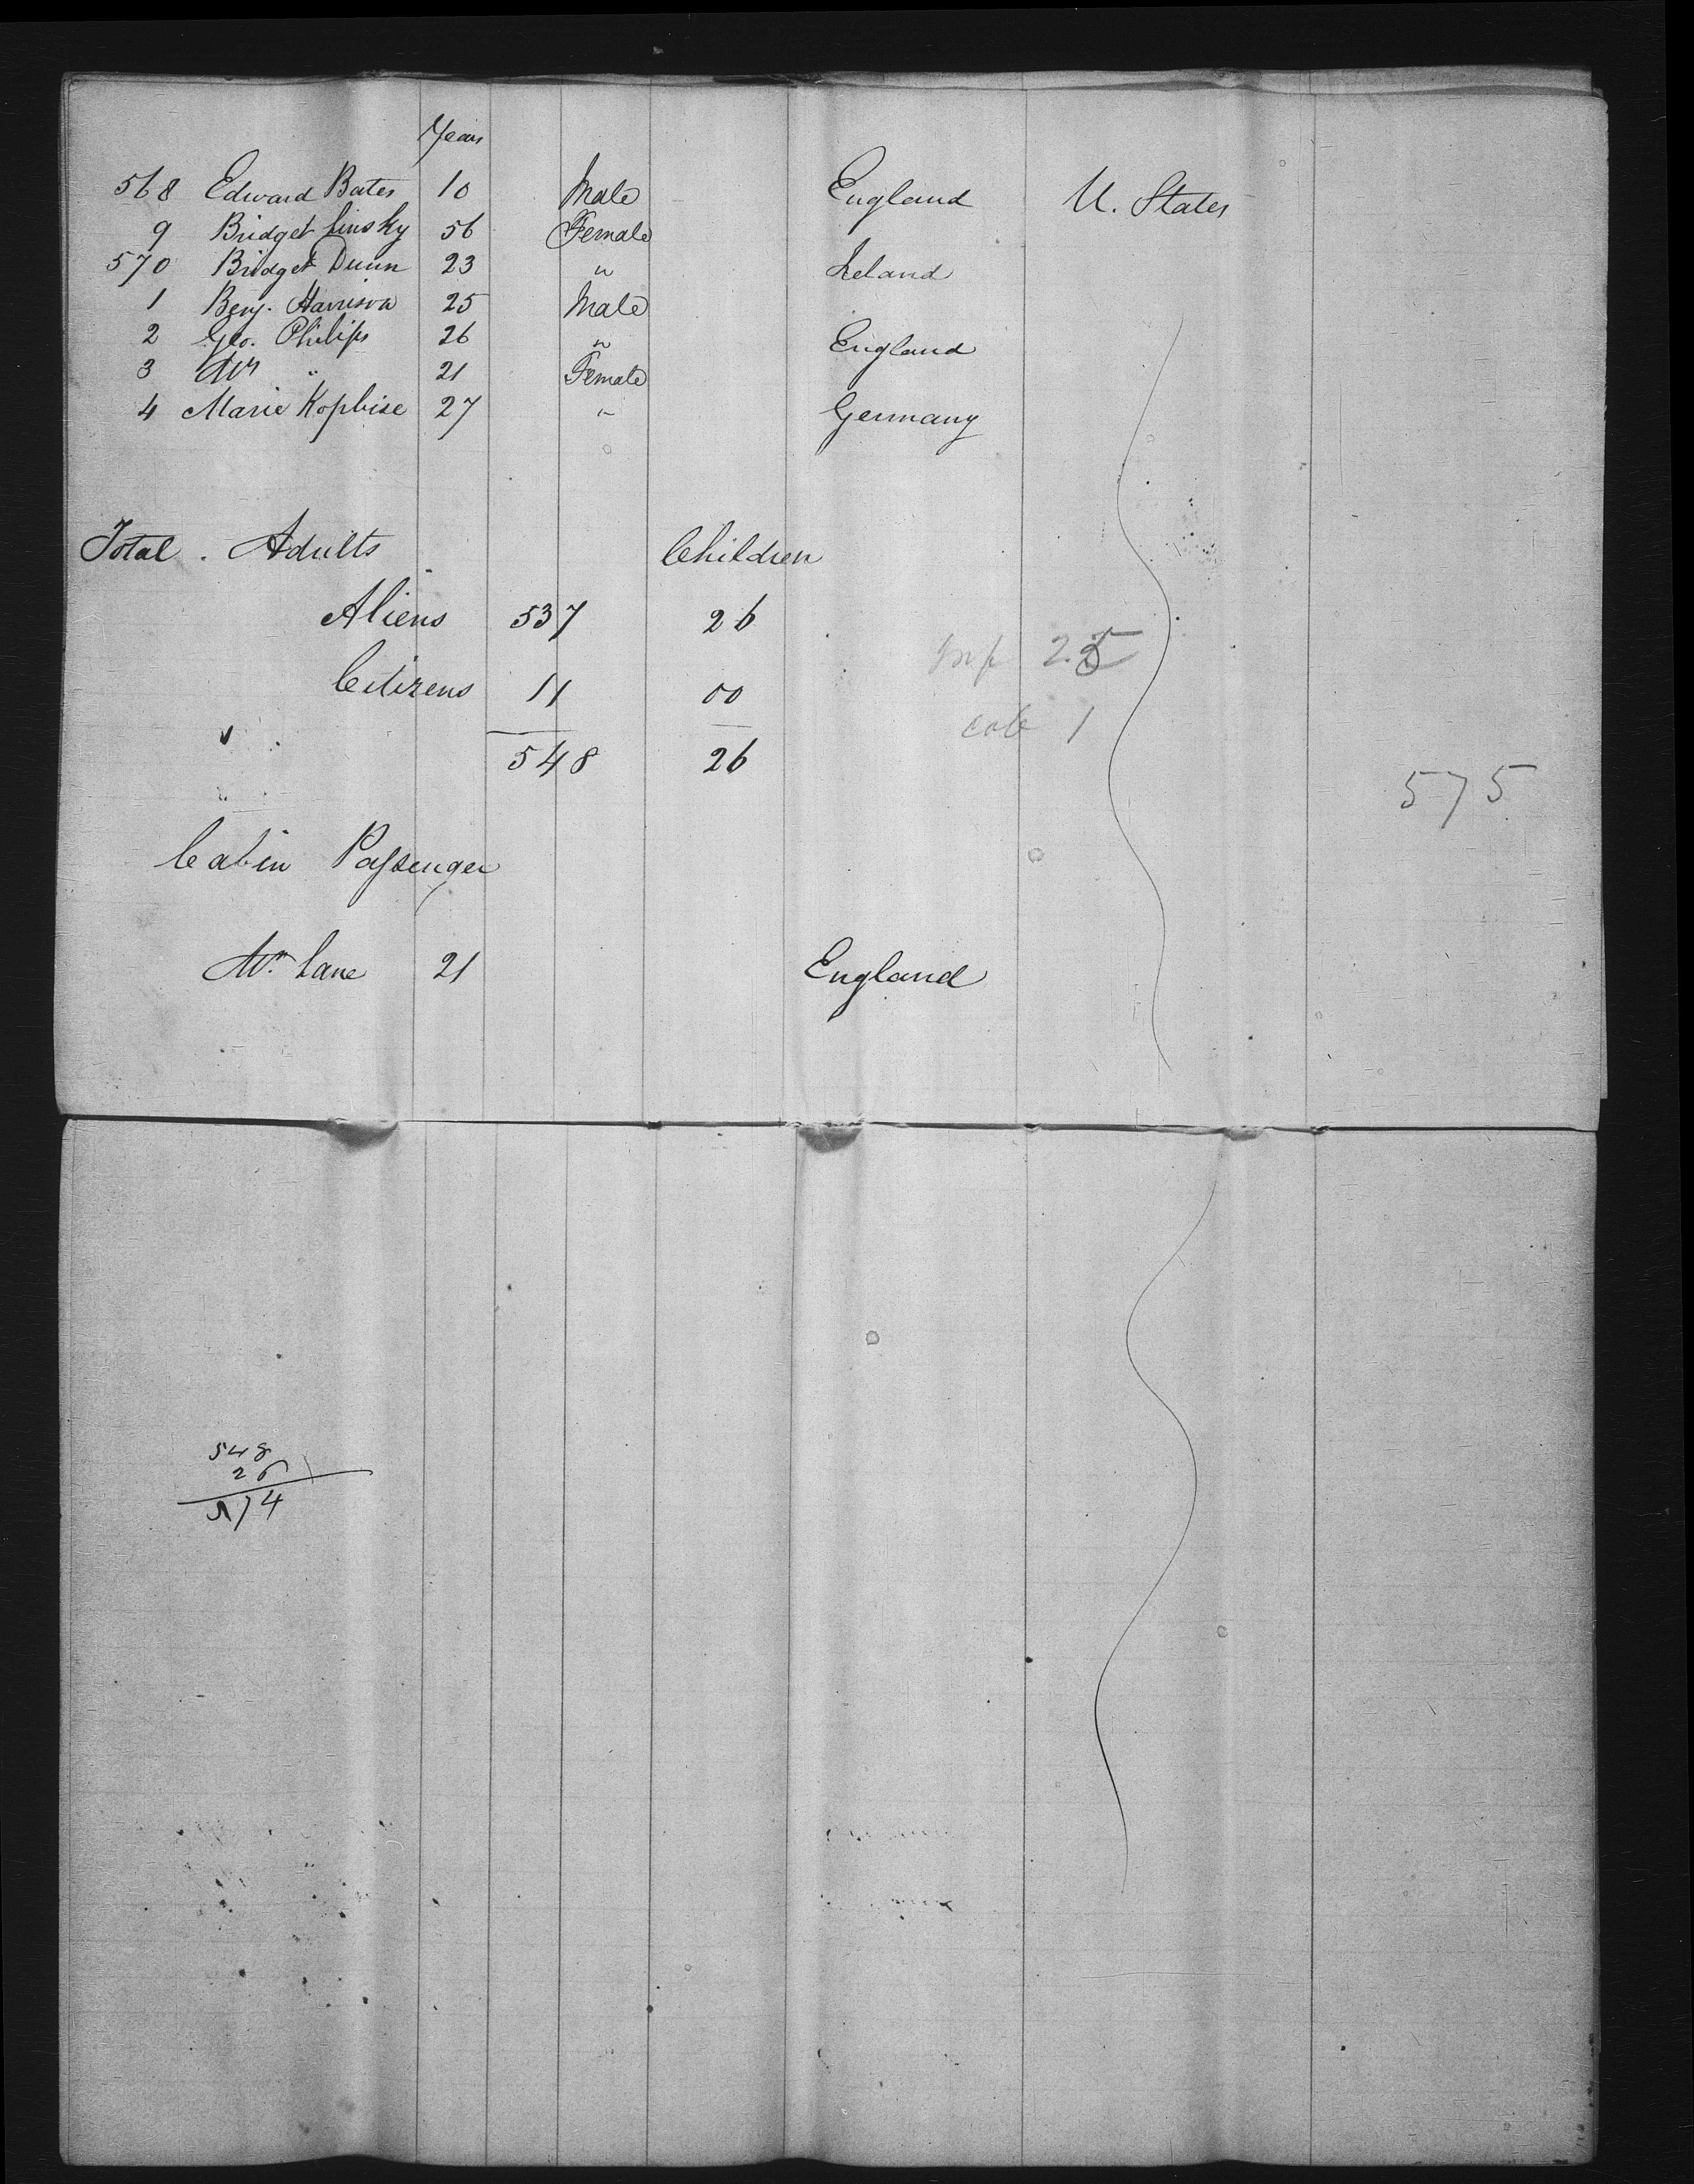 Years
568 Edward Bates 10 Male England U. States
9 Bridget Linsky 56 Female
570 Bridget Dunn 23 " Ireland
1 Benj. Harrison 25 Male
2 Geo. Philips 26 " England
3 Mrs " 21 Female
4 Marie Kopbise 27 " Germany
Total . Adults Children
Aliens 537 26
Inf 25
Citizens 11 00
cab 1
548 26
575
Cabin Passenger
Mr. Lane 21 England
548
26
574